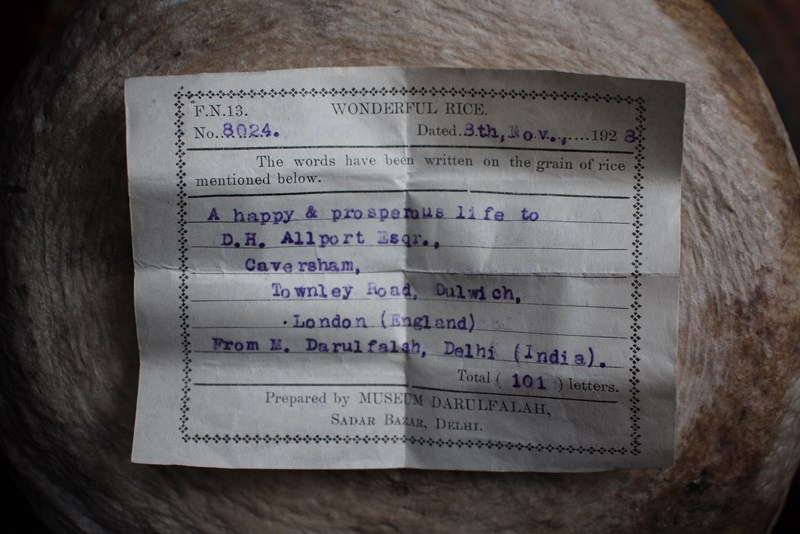 F.N.13. WONDERFUL RICE.
No. 8024. Dated. 8th, Nov.,.....192 8
The words have been written on the grain of rice
mentioned below.
A happy & prosperous life to
D.H. Allport Esqr.,
Caversham,
Townley Road, Dulwich,
London (England)
From M. Darulfalah, Delhi (India).
Total ( 101 ) letters.
Prepared by MUSEUM DARULFALAH,
SADAR BAZAR, DELHI.